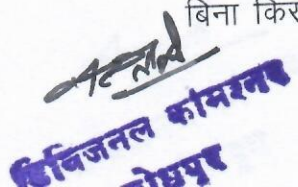 बिना किस
डिविजनल कमिश्नर
जोधपुर